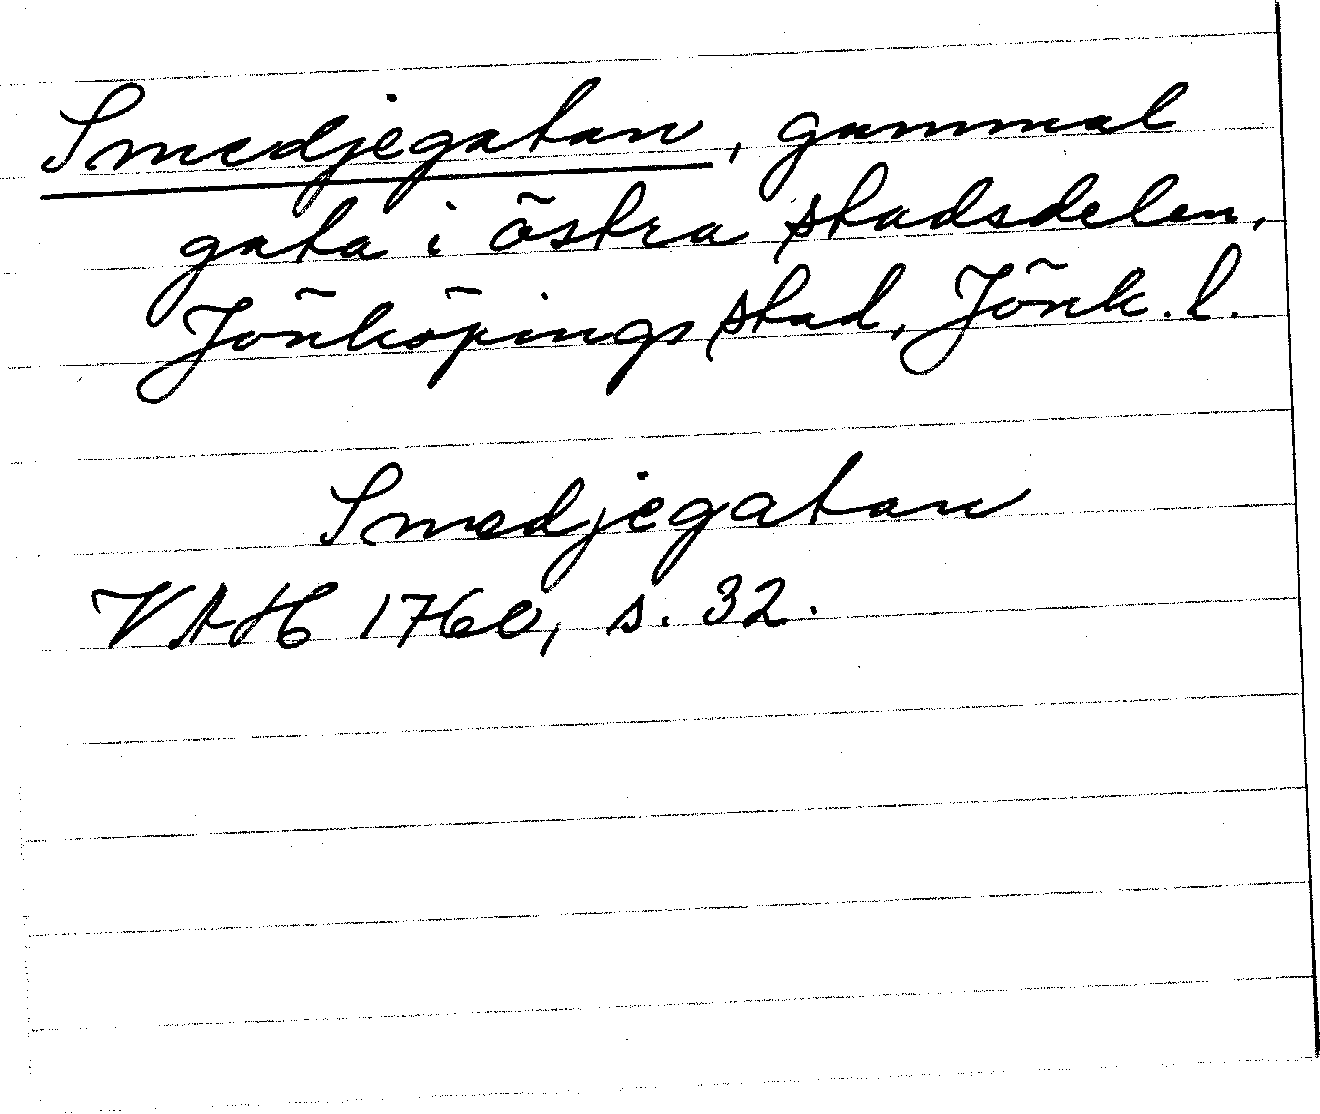 Smedjegatan, gammal
gata i östra stadsdelen,
Jönköpings stad, Jönk. l.
Smedjegatan
VAH 1760, s. 32.